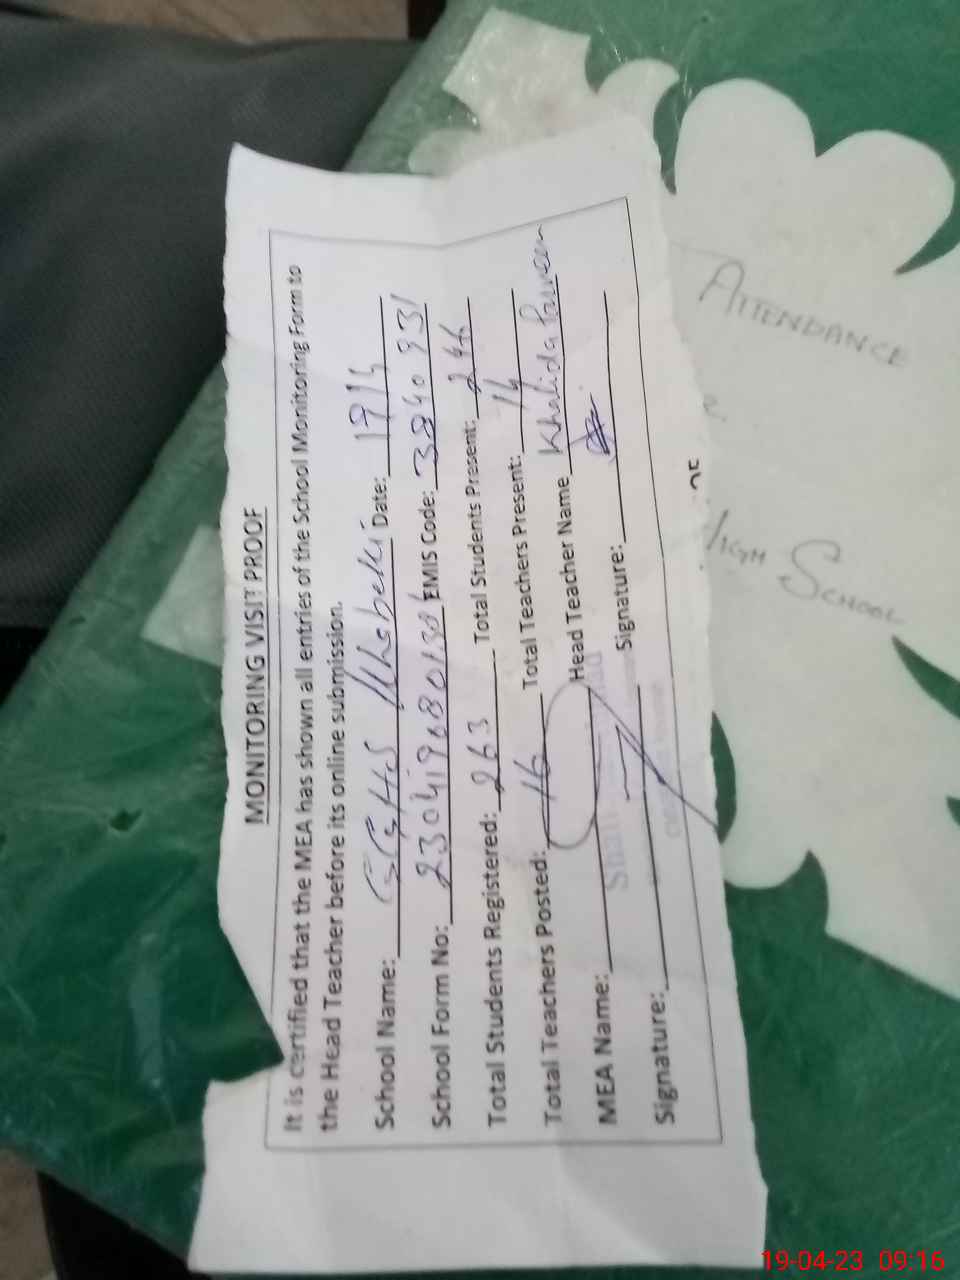 MONITORING VISIT PROOF
It is certified that the MEA has shown all entries of the School Monitoring Form to
the Head Teacher before its online submission.
School Name: GGHS Date: 19/4
School Form No: EMIS Code: 3840931
Total Students Registered: 263 Total Students Present: 246
Total Teachers Posted: 16 Total Teachers Present: 14
MEA Name: Head Teacher Name Khalida Parveen
Signature: Signature:
ATTENDANCE
HIGH SCHOOL
19-04-23 09:16